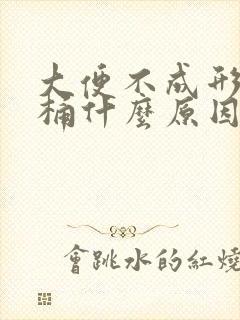 大便不成形
桶什麼原因
會跳水的紅燒